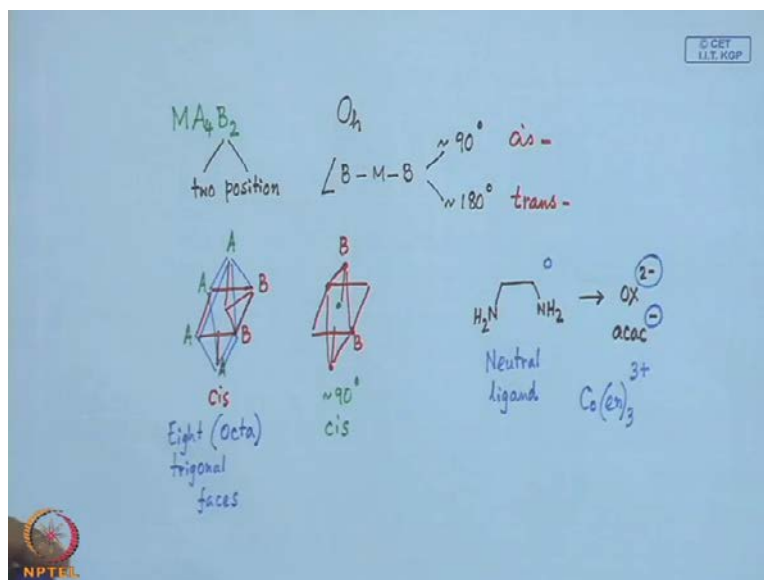 © CET
I.I.T. KGP
MA₄B₂
Oh
two position
∠B-M-B
~90° cis-
~180° trans-
A
A
B
A
B
A
cis
Eight (Octa)
trigonal
faces
B
B
~90°
cis
0
H₂N
NH₂
→ ox²⁻
acac⁻
Neutral
ligand
Co(en)₃³⁺
NPTEL